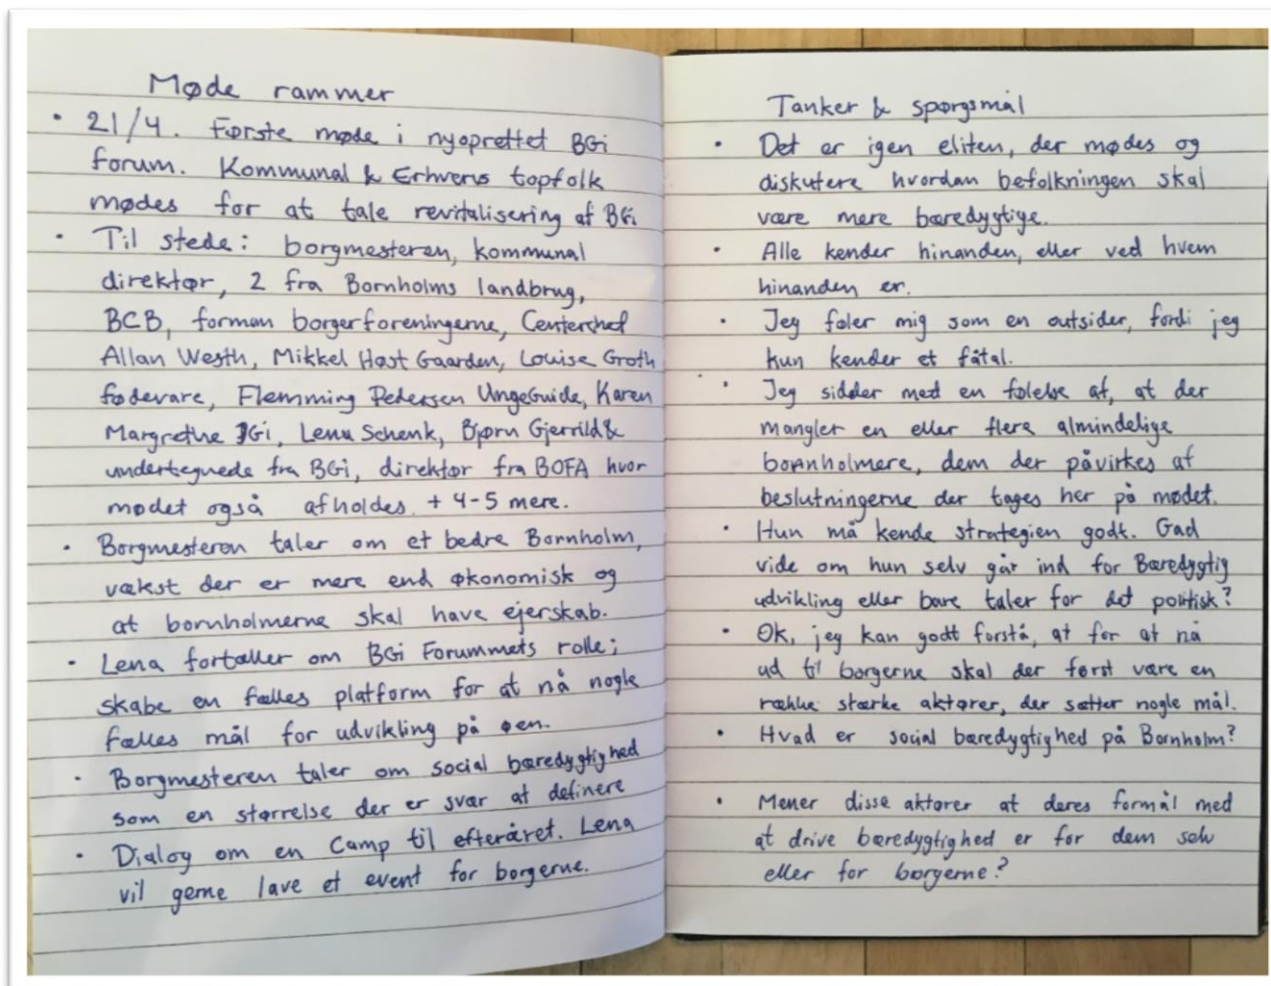 Møde rammer
• 21/4. Første møde i nyoprettet BGi
forum. Kommunal & Erhvervs topfolk
mødes for at tale revitalisering af BGi
• Til stede: borgmesteren, kommunal
direktør, 2 fra Bornholms landbrug,
BCB, forman borgerforeningerne, Centerchef
Allan Westh, Mikkel Høst Gaarden, Louise Groth
fødevare, Flemming Pedersen UngeGuide, Karen
Margrethe BGi, Lena Schenk, Bjørn Gjerrild &
undertegnede fra BGi, direktør fra BOFA hvor
mødet også afholdes. + 4-5 mere.
• Borgmesteren taler om et bedre Bornholm,
vækst der er mere end økonomisk og
at bornholmerne skal have ejerskab.
• Lena fortæller om BGi Forummets rolle;
skabe en fælles platform for at nå nogle
fælles mål for udvikling på øen.
• Borgmesteren taler om social bæredygtighed
som en størrelse der er svær at definere
• Dialog om en Camp til efteråret. Lena
vil gerne lave et event for borgerne.
Tanker & spørgsmål
• Det er igen eliten, der mødes og
diskutere hvordan befolkningen skal
være mere bæredygtige.
• Alle kender hinanden, eller ved hvem
hinanden er.
• Jeg føler mig som en outsider, fordi jeg
kun kender et fåtal.
• Jeg sidder med en følelse af, at der
mangler en eller flere almindelige
bornholmere, dem der påvirkes af
beslutningerne der tages her på mødet.
• Hun må kende strategien godt. Gad
vide om hun selv går ind for Bæredygtig
udvikling eller bare taler for det politisk?
• Ok, jeg kan godt forstå, at for at nå
ud til borgerne skal der først være en
række stærke aktører, der sætter nogle mål.
• Hvad er social bæredygtighed på Bornholm?
• Mener disse aktører at deres formål med
at drive bæredygtighed er for dem selv
eller for borgerne?